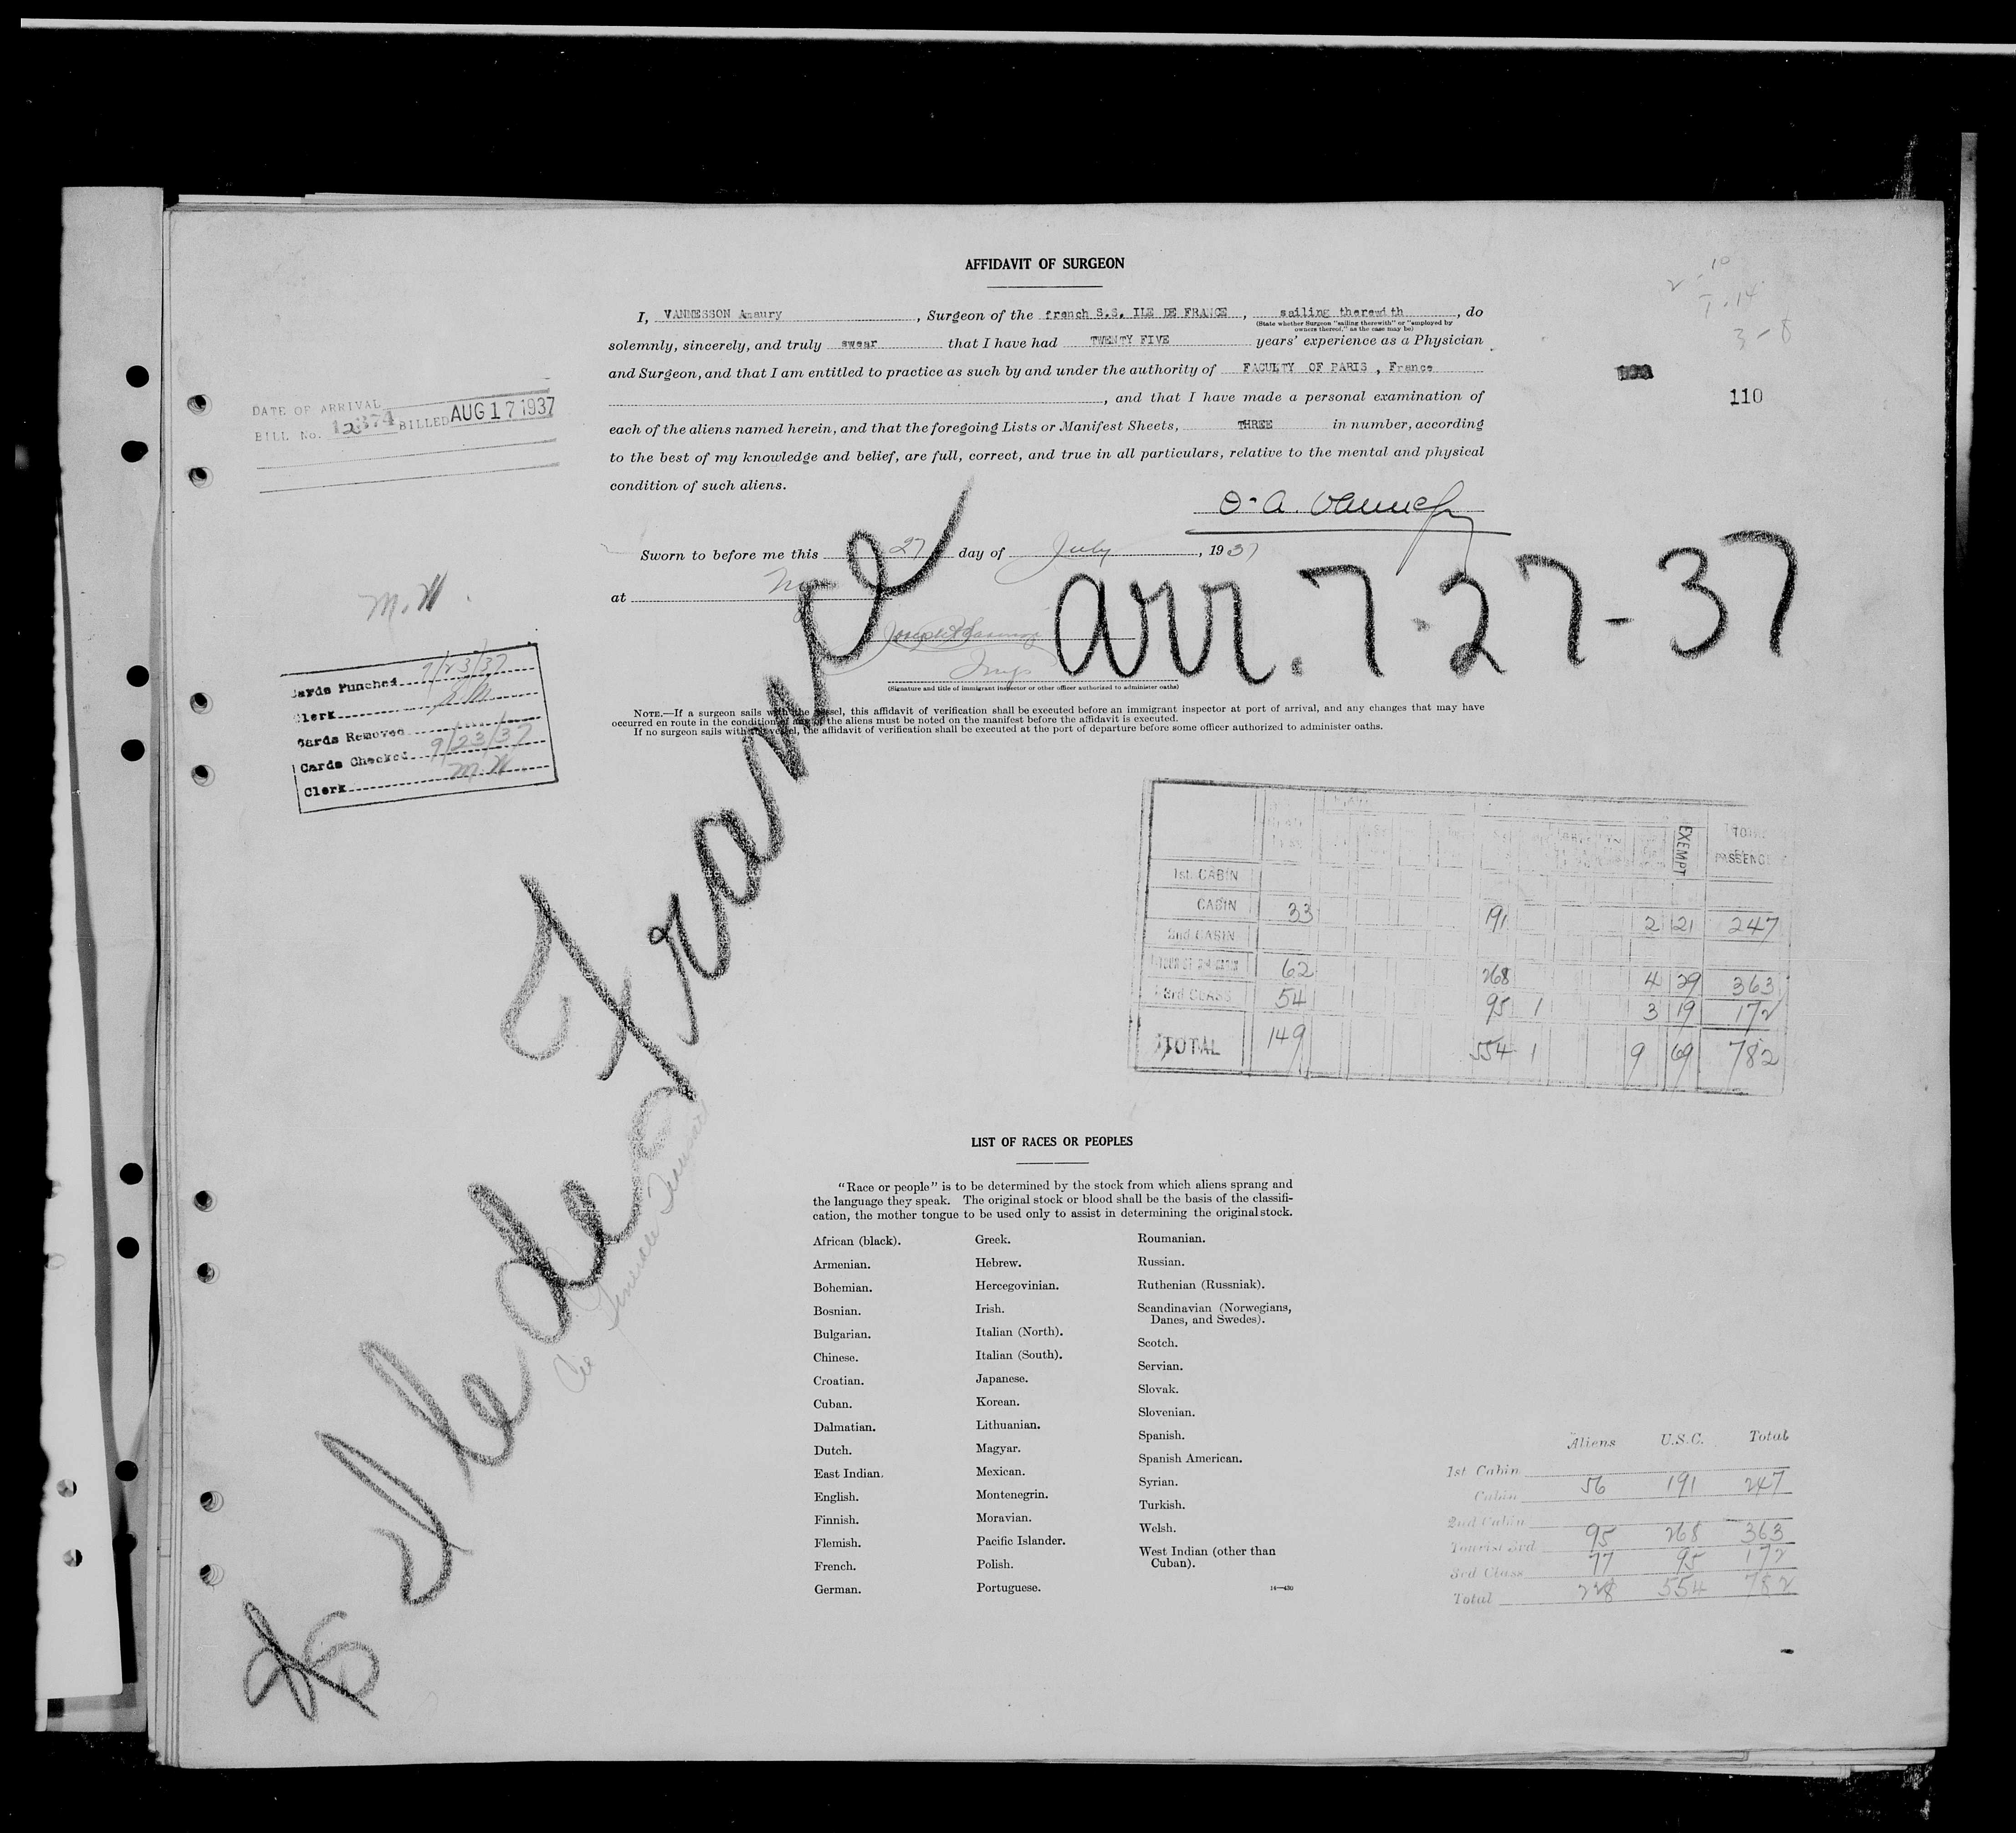 AFFIDAVIT OF SURGEON
I, VANNESSON Amaury, Surgeon of the french S.S. ILE DE FRANCE, sailing therewith, do
(State whether Surgeon "sailing therewith" or "employed by
owners thereof," as the case may be)
solemnly, sincerely, and truly swear that I have had TWENTY FIVE years' experience as a Physician
and Surgeon, and that I am entitled to practice as such by and under the authority of FACULTY OF PARIS, France
, and that I have made a personal examination of
each of the aliens named herein, and that the foregoing Lists or Manifest Sheets, THREE in number, according
to the best of my knowledge and belief, are full, correct, and true in all particulars, relative to the mental and physical
condition of such aliens.
Sworn to before me this 27 day of July, 1937
at
(Signature and title of immigrant inspector or other officer authorized to administer oaths)
NOTE.—If a surgeon sails with the vessel, this affidavit of verification shall be executed before an immigrant inspector at port of arrival, and any changes that may have
occurred en route in the condition of any of the aliens must be noted on the manifest before the affidavit is executed.
If no surgeon sails with the vessel, the affidavit of verification shall be executed at the port of departure before some officer authorized to administer oaths.
2-10
1-14
3-8
110
DATE OF ARRIVAL
BILL No. 12374 BILLED AUG 17 1937
M.W.
Cards Punched
Clerk
Cards Removed
Cards Checked 9/23/37
Clerk M.W.
arr. 7-27-37
Ile de France
EXEMPT TOTAL PASSENGE
1st. CABIN
CABIN 33 191 2 21 247
2nd CABIN
62 268 4 29 363
3rd CLASS 54 95 1 3 19 172
TOTAL 149 554 1 9 69 782
LIST OF RACES OR PEOPLES
"Race or people" is to be determined by the stock from which aliens sprang and
the language they speak. The original stock or blood shall be the basis of the classifi-
cation, the mother tongue to be used only to assist in determining the original stock.
African (black).
Armenian.
Bohemian.
Bosnian.
Bulgarian.
Chinese.
Croatian.
Cuban.
Dalmatian.
Dutch.
East Indian.
English.
Finnish.
Flemish.
French.
German.
Greek.
Hebrew.
Hercegovinian.
Irish.
Italian (North).
Italian (South).
Japanese.
Korean.
Lithuanian.
Magyar.
Mexican.
Montenegrin.
Moravian.
Pacific Islander.
Polish.
Portuguese.
Roumanian.
Russian.
Ruthenian (Russniak).
Scandinavian (Norwegians,
Danes, and Swedes).
Scotch.
Servian.
Slovak.
Slovenian.
Spanish.
Spanish American.
Syrian.
Turkish.
Welsh.
West Indian (other than
Cuban).
14—430
Aliens U.S.C. Total
1st Cabin
Cabin 56 191 247
2nd Cabin
Tourist 3rd 95 268 363
3rd Class 77 95 172
Total 228 554 782